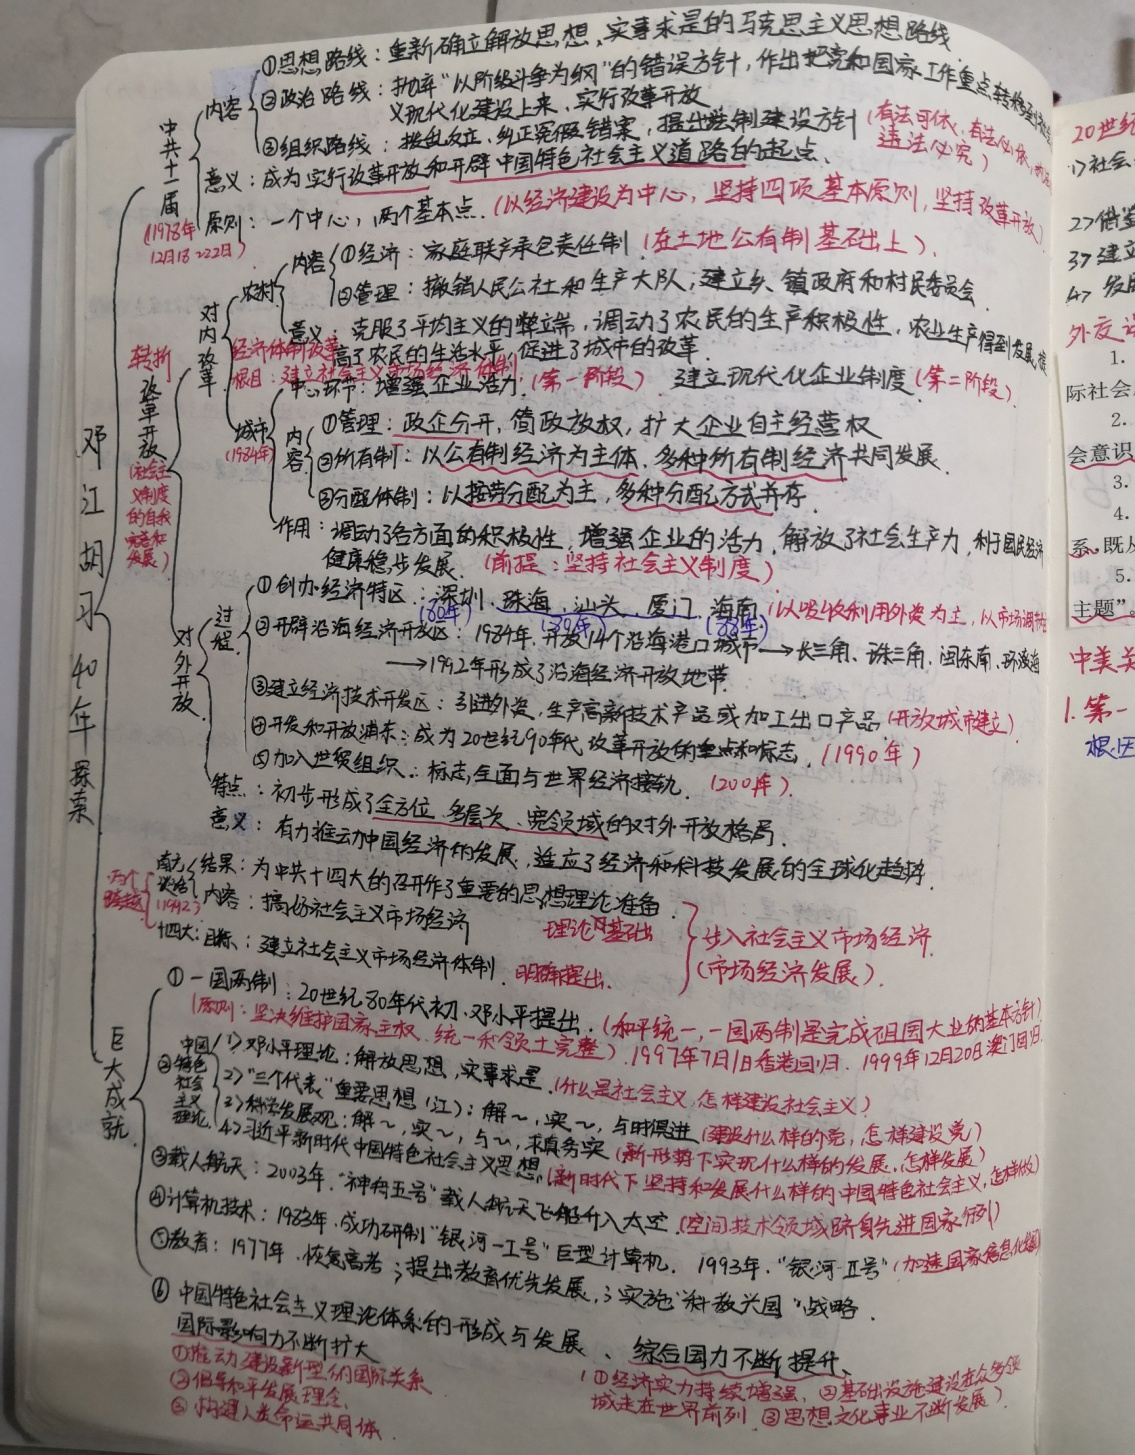 ①思想路线：重新确立解放思想、实事求是的马克思主义思想路线
内容
②政治路线：抛弃“以阶级斗争为纲”的错误方针，作出把党和国家工作重点转移至
义现代化建设上来，实行改革开放
③组织路线：拨乱反正，纠正冤假错案，提出法制建设方针（有法可依、有法必依、
违法必究）
中共十一届
（1978年12月18-22日）
意义：成为实行改革开放和开辟中国特色社会主义道路的起点、
原则：一个中心，两个基本点（以经济建设为中心，坚持四项基本原则，坚持改革开放）
邓江胡习40年探索
转折
改革开放
（社会主义制度的自我完善和发展）
对内改革
农村
内容
①经济：家庭联产承包责任制（在土地公有制基础上）
②管理：撤销人民公社和生产大队；建立乡、镇政府和村民委员会
意义：克服了平均主义的弊端，调动了农民的生产积极性，农业生产得到发展，提
高了农民的生活水平，促进了城市的改革.
经济体制改革
根目：建立社会主义市场经济体制
中心环节：增强企业活力（第一阶段） 建立现代化企业制度（第二阶段）
城市
（1984年）
内容
①管理：政企分开，简政放权，扩大企业自主经营权
②所有制：以公有制经济为主体、多种所有制经济共同发展
③分配体制：以按劳分配为主，多种分配方式并存.
作用：调动了各方面的积极性，增强企业的活力，解放了社会生产力，利于国民经济
健康稳步发展.（前提：坚持社会主义制度）
对外开放
过程
①创办经济特区：深圳、珠海、汕头、厦门、海南（以吸收利用外资为主，以市场调节为
（80年）（88年）
②开辟沿海经济开放区：1984年，开放14个沿海港口城市→长三角、珠三角、闽东南、环渤海
→1992年形成了沿海经济开放地带.
③建立经济技术开发区：引进外资，生产高新技术产品或加工出口产品（开放城市建立）
④开发和开放浦东：成为20世纪90年代改革开放的重点和标志.（1990年）
⑤加入世贸组织：标志，全面与世界经济接轨.（2001年）.
特点：初步形成了全方位、多层次、宽领域的对外开放格局
意义：有力推动中国经济的发展，适应了经济和科技发展的全球化趋势.
两个跨越
南方谈话（1992）
结果：为中共十四大的召开作了重要的思想理论准备.
内容：搞好社会主义市场经济 理论基础
十四大：目标：建立社会主义市场经济体制 明确提出.
步入社会主义市场经济
（市场经济发展）
巨大成就
①一国两制：20世纪80年代初、邓小平提出.（和平统一，一国两制是完成祖国大业的基本方针）
（原则：坚决维护国家主权、统一和领土完整）.1997年7月1日香港回归.1999年12月20日澳门回归.
②中国特色社会主义理论
1>邓小平理论：解放思想，实事求是.（什么是社会主义，怎样建设社会主义）
2>“三个代表”重要思想（江）：解～，实～，与时俱进（建设什么样的党，怎样建设党）
3>科学发展观：解～，实～，与～，求真务实（新形势下实现什么样的发展，怎样发展）
4>习近平新时代中国特色社会主义思想（新时代下坚持和发展什么样的中国特色社会主义，怎样做）
③载人航天：2003年.“神舟五号”载人航天飞船升入太空.（空间技术领域跻身先进国家行列）
④计算机技术：1983年，成功研制“银河-I号”巨型计算机. 1993年.“银河-II号”（加速国家信息化发展）
⑤教育：1977年.恢复高考；提出教育优先发展；实施“科教兴国”战略.
⑥中国特色社会主义理论体系的形成与发展、综合国力不断提升、
国际影响力不断扩大
①推动建设新型的国际关系
②倡导和平发展理念
③构建人类命运共同体.
（①经济实力持续增强，②基础设施建设在众多领
域走在世界前列 ③思想文化事业不断发展）
20世纪
1>社会
2>借鉴
3>建立
4>发展
外交
1.
际社会
2.
会意识
3.
4.
系，既从
5.
主题”。
中美关
1.第一
根因